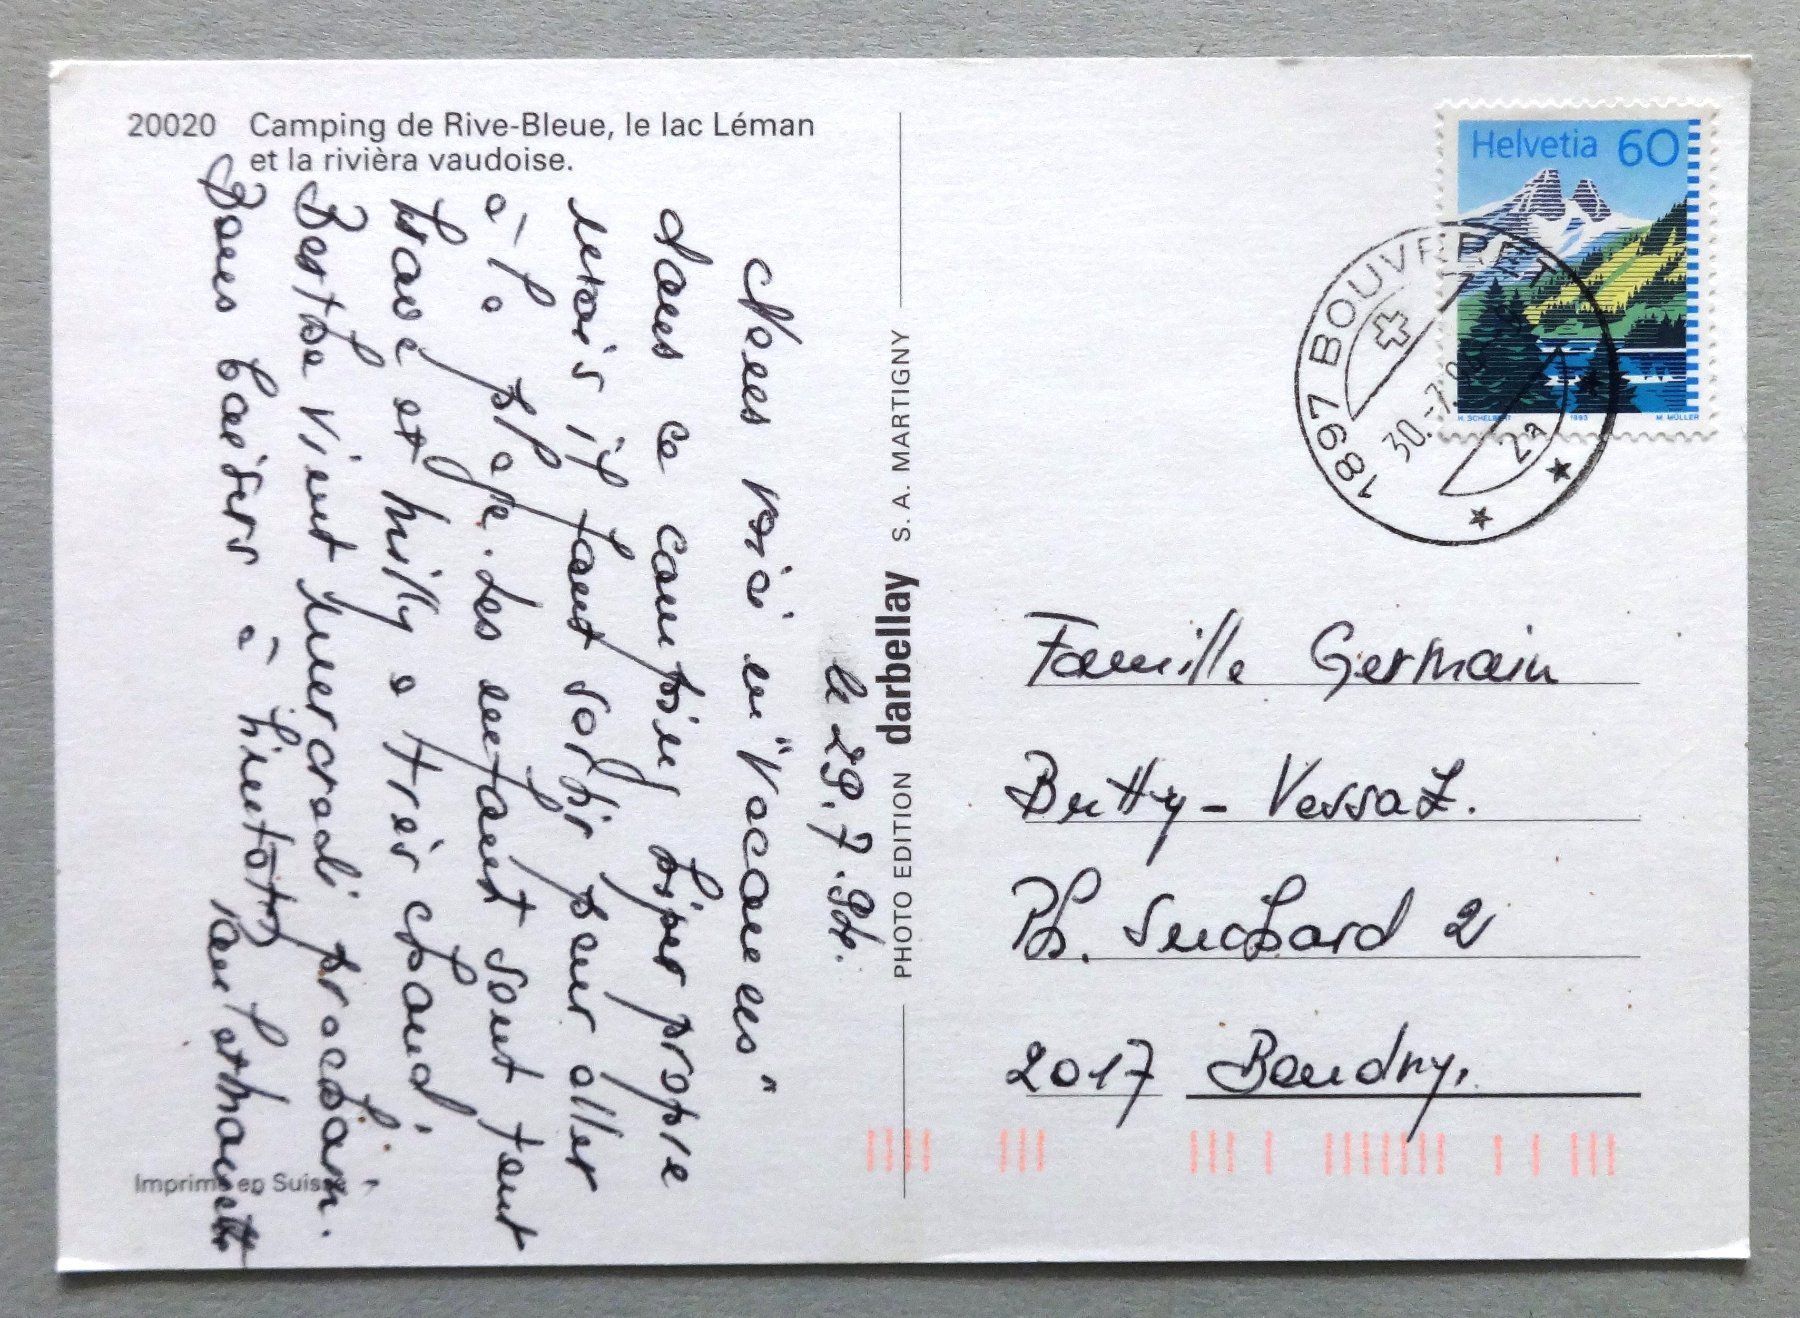 20020 Camping de Rive-Bleue, le lac Léman
et la rivièra vaudoise.
le 29.7.94.
Nous voici en "Vacances"
dans ce camping hyper propre
mais il faut sortir pour aller
à la plage. Les enfant sont tout
bravé et Milly a très chaud
Berthe vient mercredi prochain.
Bons baisers à bientôt
Paul et
Imprimé en Suisse
PHOTO EDITION darbellay S. A. MARTIGNY
Helvetia 60
H. SCHELBERT 1993 M. MÜLLER
1897 BOUVERET
30.-7.9
2a
Famille Germain
Butty-Vessaz.
Ph. Suchard 2
2017 Boudry.